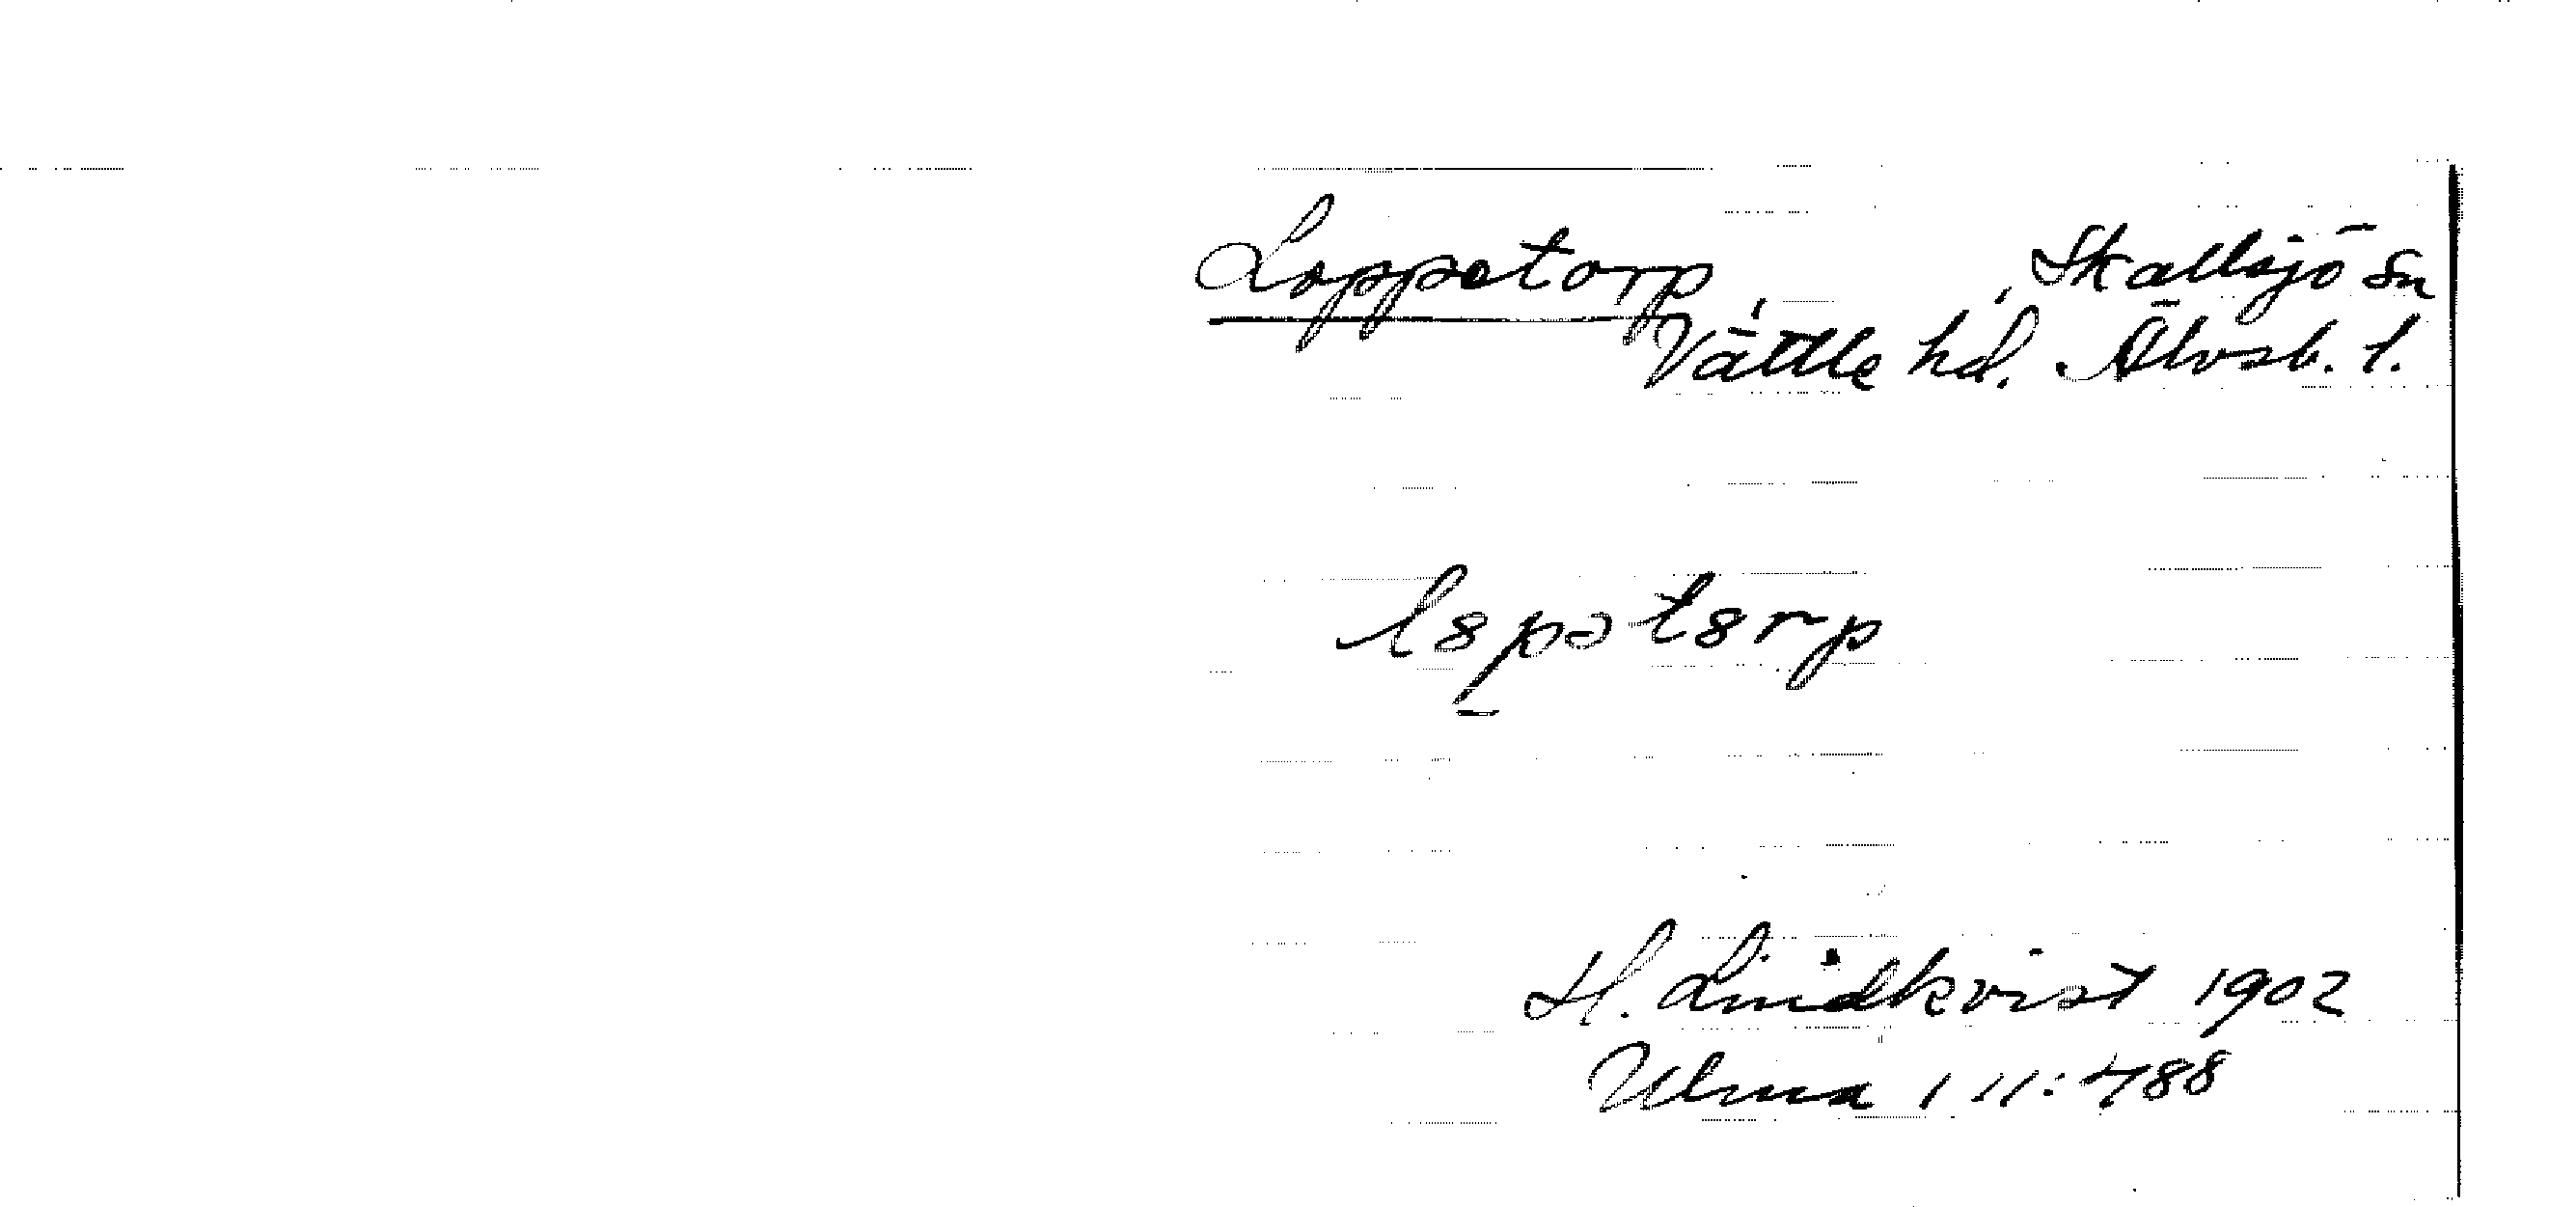 Loppetorp, Skallsjö sn
Vättle hd. Älvsb. l.
l8pət8rp
H. Lindkvist 1902
Ulma 111:488